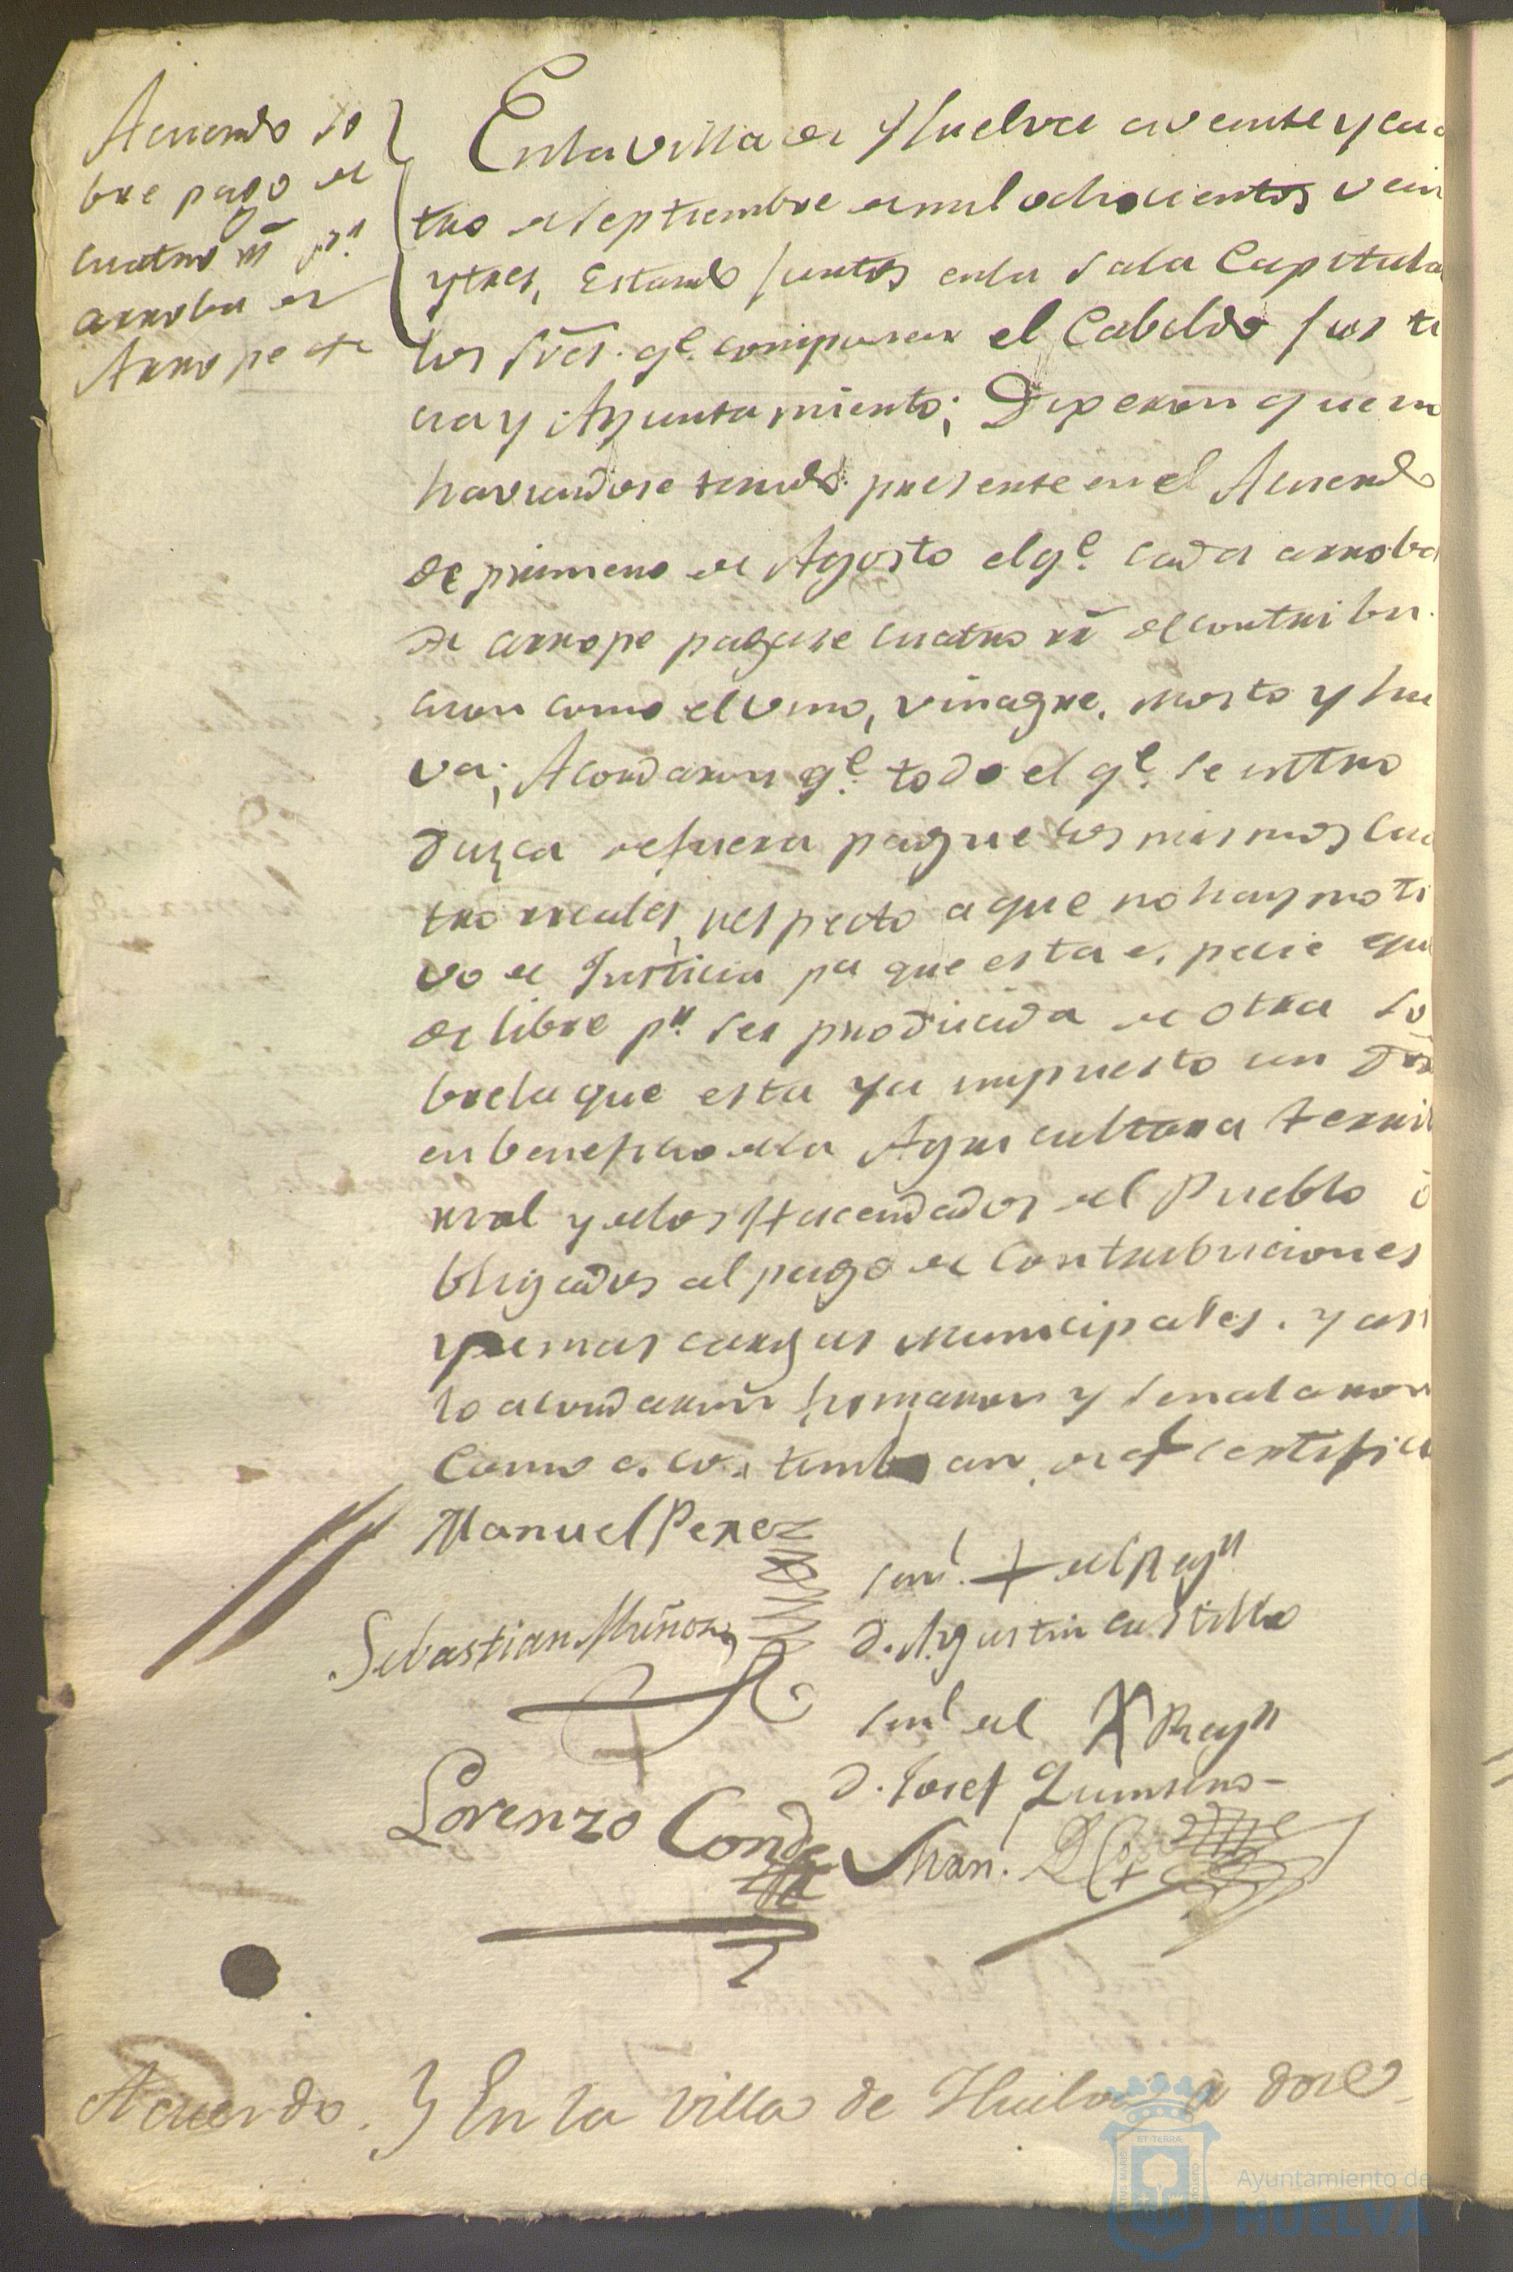 Acuerdo so
bre pago de
cuatro rs pr.
arroba de
Arrope &
En la villa de Huelva a veinte y cua
tro de septiembre de mil ochocientos vein
y tres, Estando juntos en la Sala Capitula
los Sres. qe. componen el Cabildo Justi
cia y Ayuntamiento; Dixeron que no
haviendose tenido presente en el Acuerdo
de primero de Agosto el qe. cada arroba
de arrope pagase cuatro rs de contribu
cion como el vino, vinagre, mosto y hu
va; Acordaron qe. todo el qe. se intro
duzca de fuera pague los mismos cua
tro reales, respecto a que no hay moti
vo de Justicia pa que esta especie que
de libre pr. ser producida de otra so
bre la que esta ya impuesto un dro
en beneficio de la Agricultura terri
rial y de los Hacendados del Pueblo o
bligados al pago de Contribuciones
y demas cargas Municipales. y asi
lo acordaron firmaron y señalaron
como acostumbran de qe certifico
Manuel Perez
señl. + del Regr
Sebastian Muñoz
D. Agustin Castilla
señl del X Regr
D. Josef
Lorenzo Conde
Acuerdo. } En la villa de Huelva a doce
ET TERRÆ
Ayuntamiento de
HUELVA